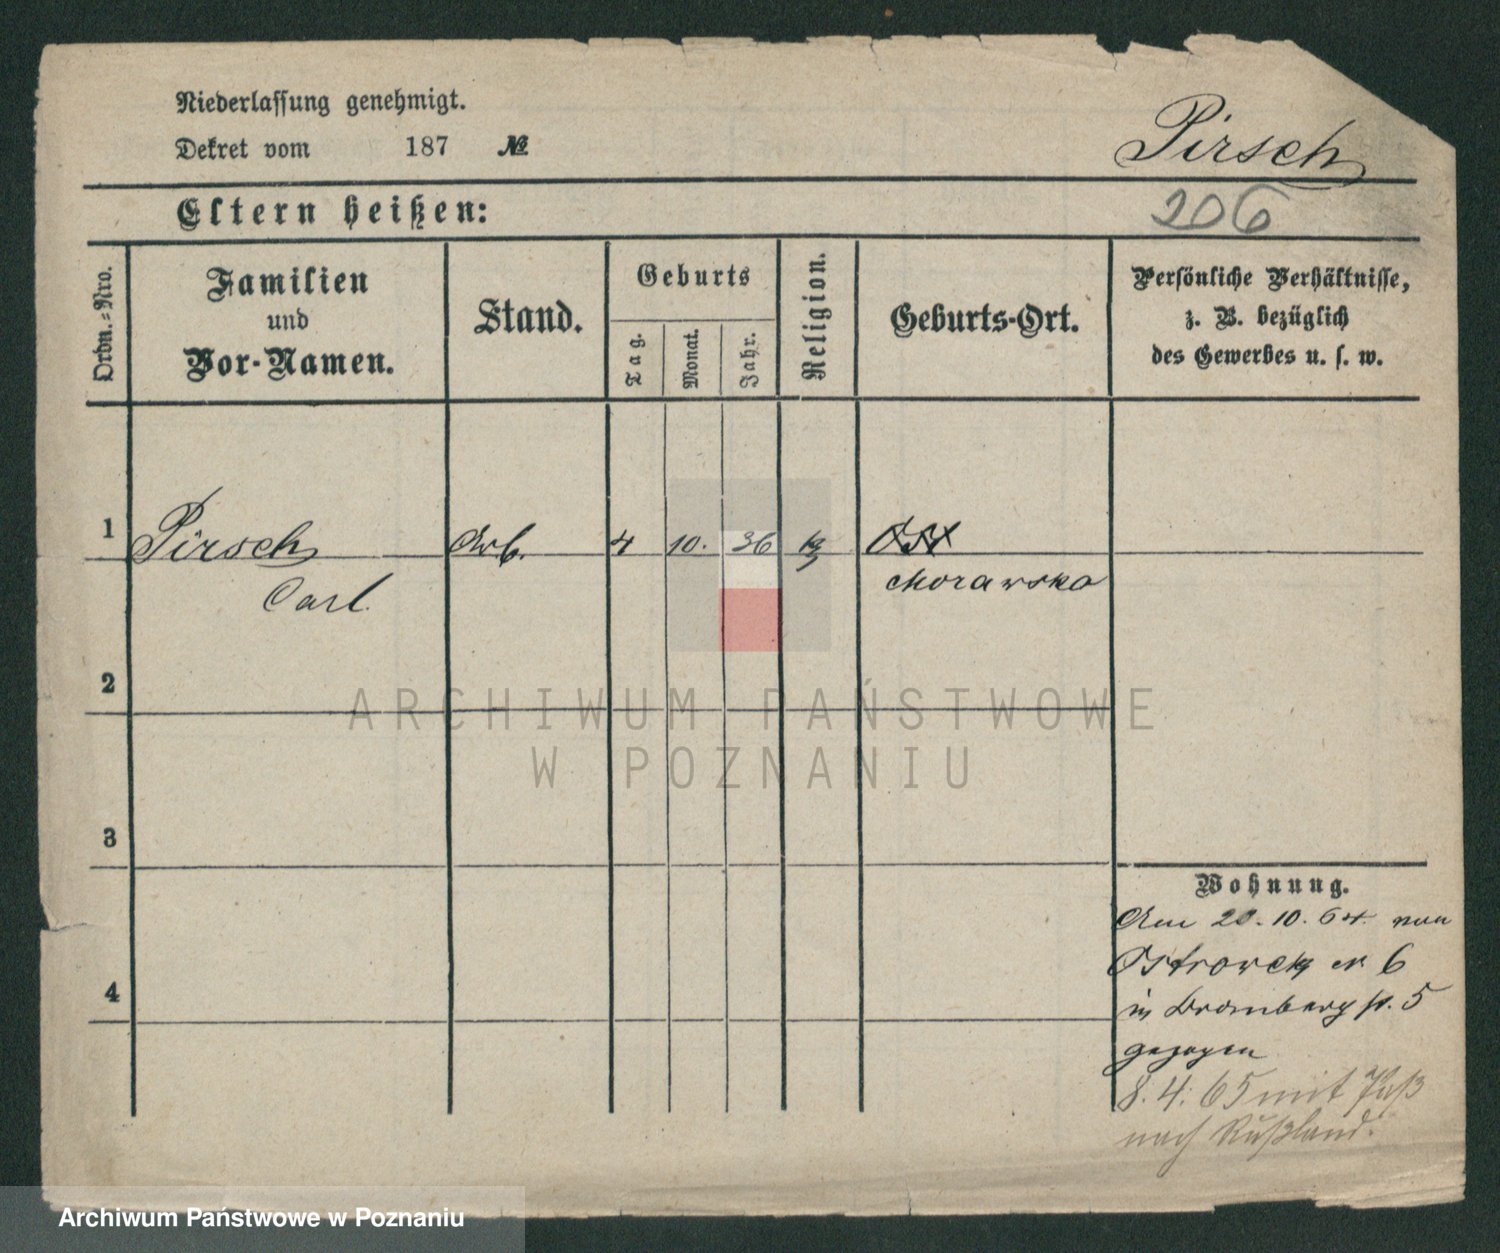 Niederlassung genehmigt.
Dekret vom 187 №
Pirsch
Eltern heißen:
206
Ordn.-Nro.
Familien
und
Vor-Namen.
Stand.
Geburts
Tag.
Monat.
Jahr.
Religion.
Geburts-Ort.
Persönliche Verhältnisse,
z. B. bezüglich
des Gewerbes u. s. w.
1 Pirsch Arb. 4 10. 36
Carl. Morawska
2
ARCHIWUM PAŃSTWOWE
W POZNANIU
3
Wohnung.
Am 20.10.64. von
6
4
in Bromberg st. 5
gezogen
8.4.65 mit Paß
nach Rußland.
Archiwum Państwowe w Poznaniu